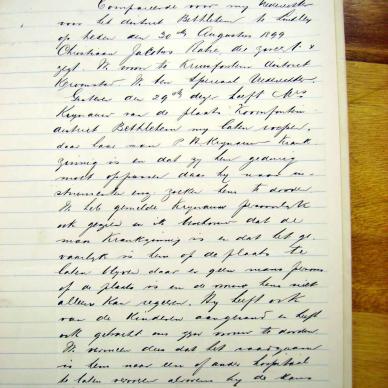 Compareerde voor my Vrederechter
voor het district Bethlehem te Lindley
op heden den 30ste Augustus 1899
Christiaan Jacobus Rabie die zweert &
zegt. Ik woon te Kromfontein district
Kroonstad Ik ben Speciaal Vrederechter
Gisteren den 29ste dezer heeft Mrs
Krynauw van de plaats Doornfontein
district Bethlehem my laten roepen,
daar haar man P A Krynauw Krank
zinnig is en dat zy hem gedurig
moet oppassen daar hy naar in-
strumenten enz zoeken hem te dooden
Ik heb gemelde Krynauw persoonlijk
ook gezien en ik vertrouw dat de
man Krankzinnig is en dat het ge-
vaarlijk is hem op de plaats te
laten blyven daar er geen mans persoon
op de plaats is en de vrouw hem niet
alleen kan regeren. Hy heeft ook
van de kinderen aangerand en heeft
ook getracht om zyn vrouw te dooden
Ik vermeen dus dat het raadzaam
is hem naar een of ander hospitaal
te laten vervoer alvorens hy de kans